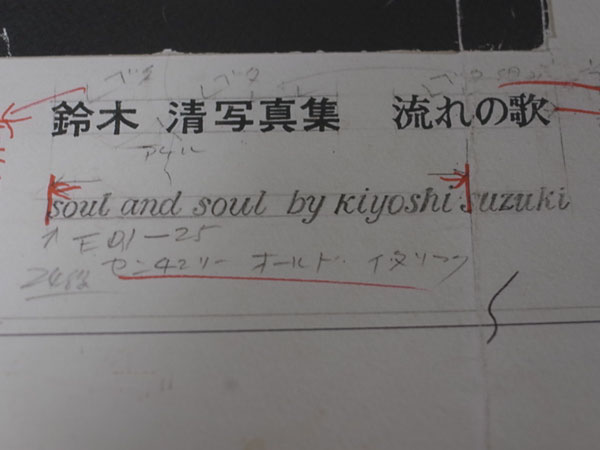 ベタ ベタ ベタ
鈴木 清写真集 流れの歌
アケル
soul and soul by kiyoshi suzuki
E01-25
センチュリー オールド イタリック